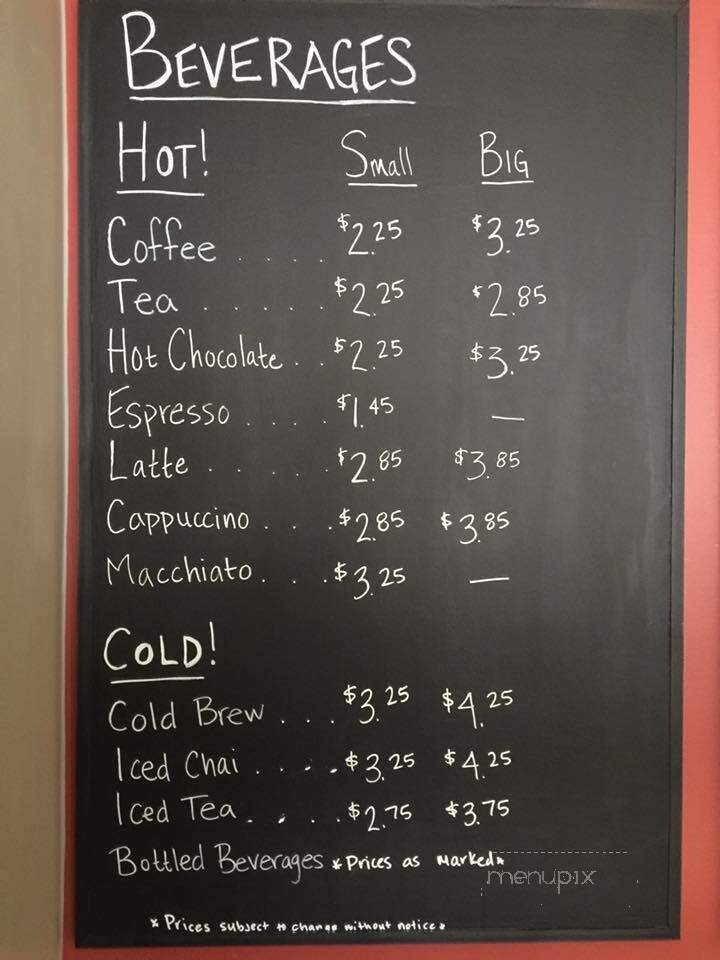 BEVERAGES
HOT! Small BIG
Coffee . . . . $2.25 $3.25
Tea . . . . . $2.25 $2.85
Hot Chocolate . . $2.25 $3.25
Espresso . . . . $1.45 —
Latte . . . . . $2.85 $3.85
Cappuccino . . . $2.85 $3.85
Macchiato . . . $3.25 —
COLD!
Cold Brew . . . $3.25 $4.25
Iced Chai . . . . $3.25 $4.25
Iced Tea . . . . $2.75 $3.75
Bottled Beverages *Prices as marked*
menupix
*Prices subject to change without notice*